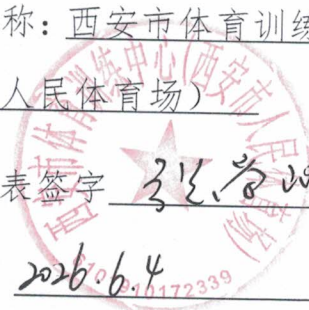 称：西安市体育训练
人民体育场）
表签字
2026.6.4
西安市体育训练中心(西安市人民体育场)